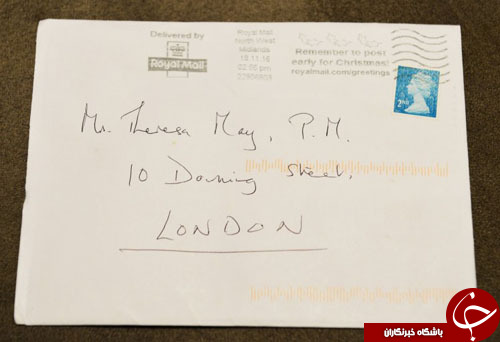 Delivered by
Royal Mail
Royal Mail
North West
Midlands
18.11.16
02:06 pm
Remember to post
early for Christmas!
royalmail.com/greetings
2nd
Mr. Theresa May, P.M.
10 Downing Street,
LONDON
باشگاه خبرنگاران